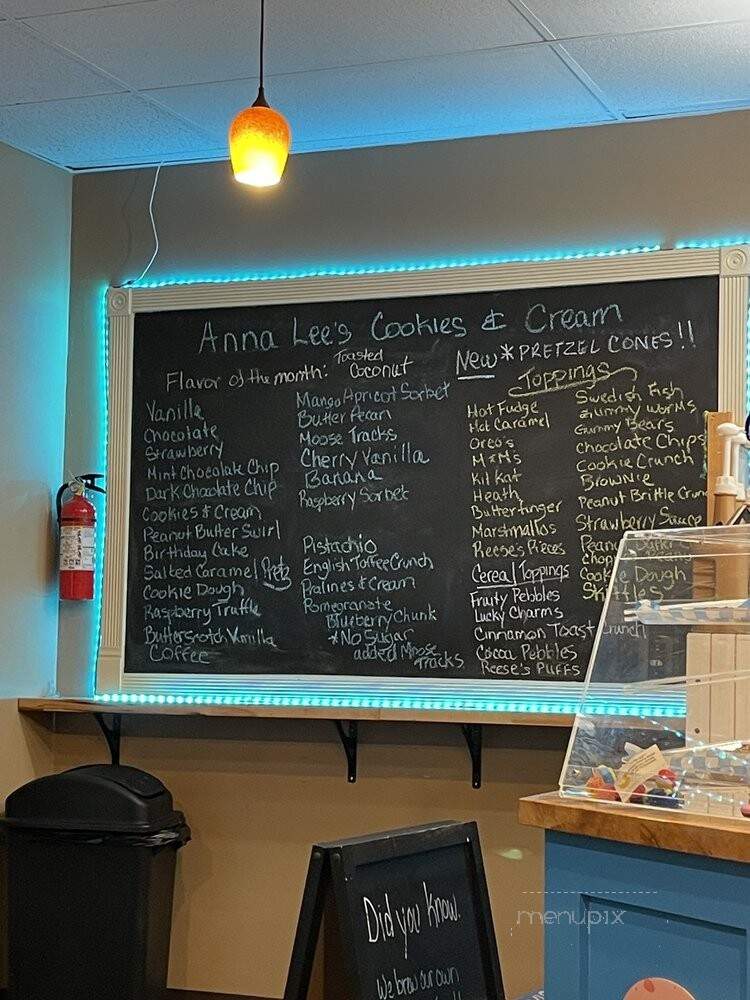 Anna Lee's Cookies & Cream
Flavor of the month: Toasted Coconut
New * PRETZEL CONES!!
Vanilla
Chocolate
Strawberry
Mint Chocolate Chip
Dark Chocolate Chip
Cookies & Cream
Peanut Butter Swirl
Birthday Cake
Salted Caramel Pretz
Cookie Dough
Raspberry Truffle
Butterscotch Vanilla
Coffee
Mango Apricot Sorbet
Butter Pecan
Moose Tracks
Cherry Vanilla
Banana
Raspberry Sorbet
Pistachio
English Toffee Crunch
Pralines & Cream
Pomegranate
Blueberry Chunk
*No Sugar
added Moose
Tracks
Toppings
Hot Fudge
Hot Caramel
Oreo's
M&M's
Kit Kat's
Heath
Butterfinger
Marshmallos
Reese's Pieces
Cereal Toppings
Fruity Pebbles
Lucky Charms
Cinnamon Toast Crunch
Cocoa Pebbles
Reese's PUFFS
Swedish Fish
Gummy Worms
Gummy Bears
Chocolate Chips
Cookie Crunch
Brownie
Peanut Brittle Crun
Strawberry Sauce
Cookie Dough
Skittles
Did you know.
We brew our own
menupix